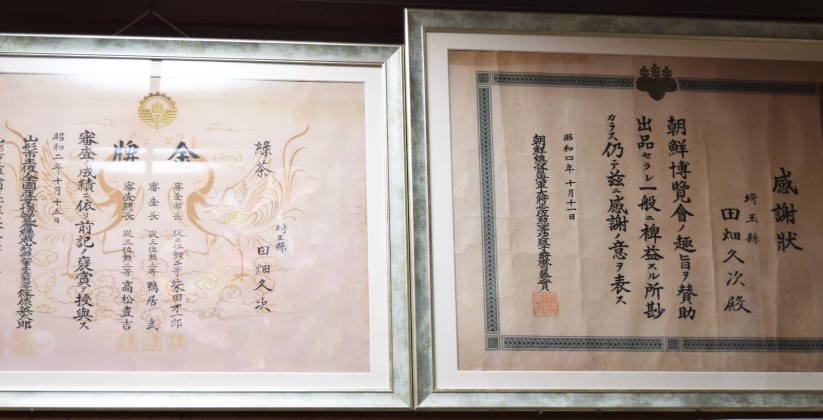 感謝狀
埼玉縣
田畑久次殿
朝鮮博覽會ノ趣旨ヲ賛助
出品セラレ一般ニ裨益スル所尠
カラス仍テ茲ニ感謝ノ意ヲ表ス
昭和四年十月十一日
朝鮮總督海軍大將 子爵齋藤實
綠茶
埼玉縣
田畑久次
金牌
審査部長 從三位勳二等 柴田才一郎
審査長 從三位勳二等 鴨居武
審査總長 從三位勳二等 高松豊吉
審査ノ成績ニ依リ前記ノ褒賞ヲ授與ス
昭和二年十月十五日
山形市主催全國産業博覽會 篠原英太郎